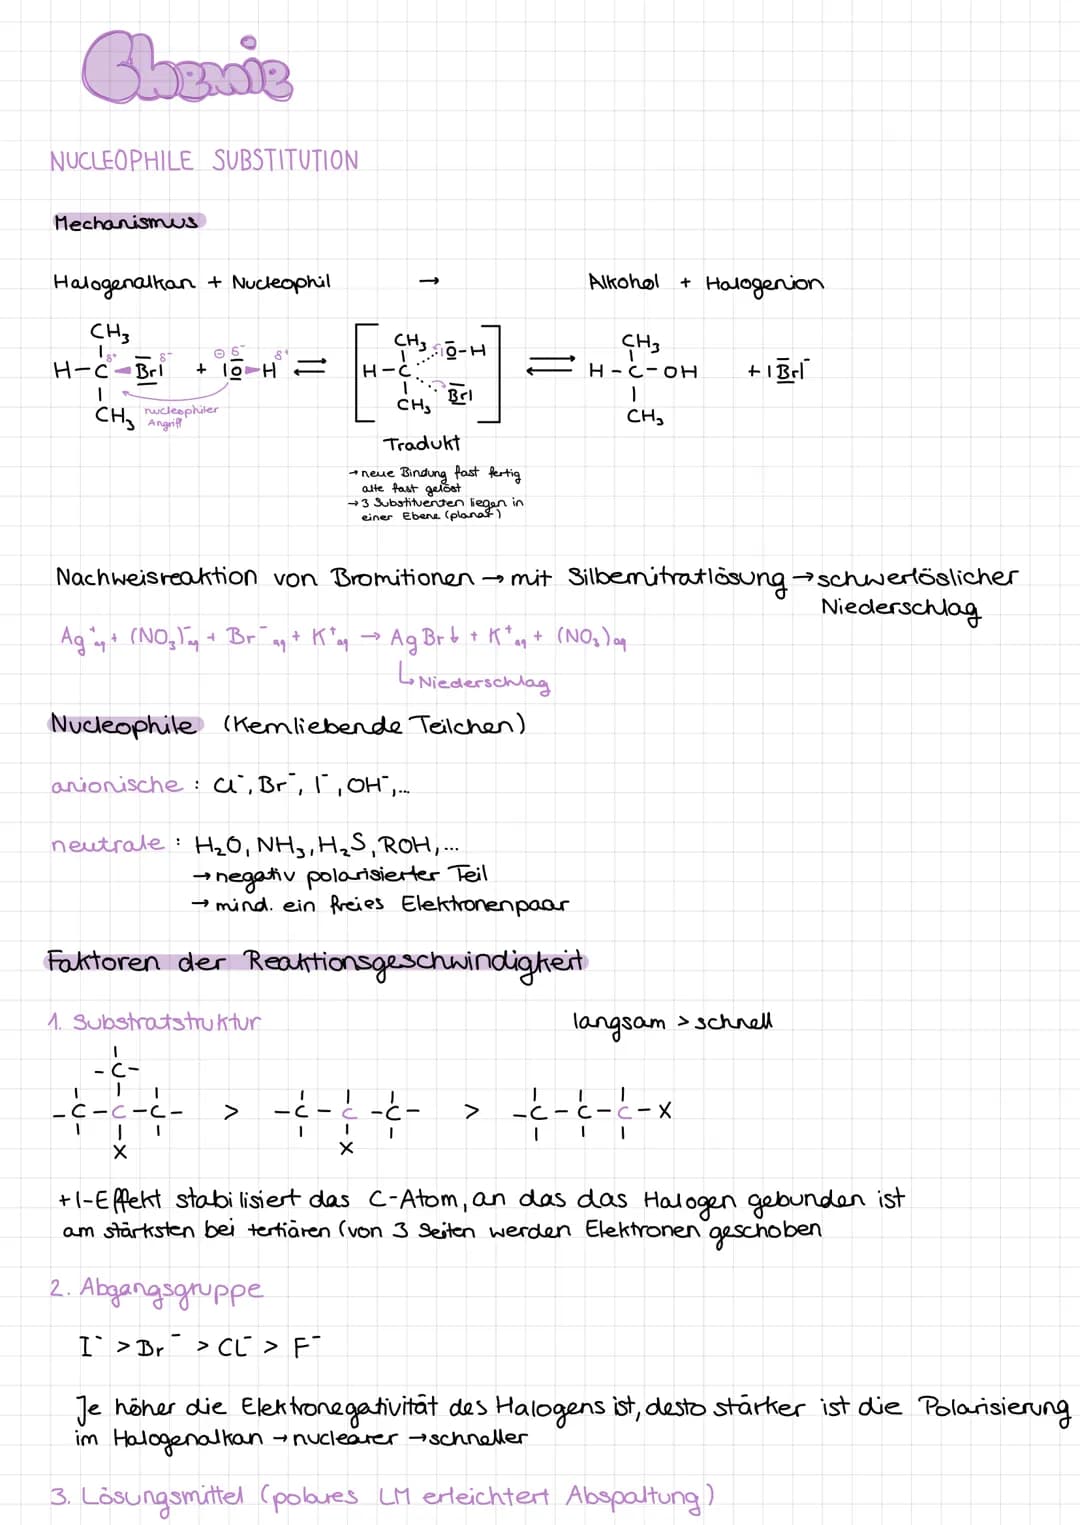 Chemie
NUCLEOPHILE SUBSTITUTION
Mechanismus
Halogenalkan + Nucleophil → Alkohol + Halogenion
CH₃ CH₃ CH₃
H-C-Br| + |O-H ⇌ [H-C O-H Br|] ⇌ H-C-OH + |Br|⁻
CH₃ CH₃ CH₃
δ⁺ δ⁻ ⊖ δ⁻ δ⁺
nucleophiler
Angriff
Tradukt
→ neue Bindung fast fertig
alte fast gelöst
→ 3 Substituenten liegen in
einer Ebene (planar)
Nachweisreaktion von Bromitionen → mit Silbernitratlösung → schwerlöslicher
Niederschlag
Ag⁺aq + (NO₃)⁻aq + Br⁻aq + K⁺aq → AgBr↓ + K⁺aq + (NO₃)aq
↳ Niederschlag
Nucleophile (Kernliebende Teilchen)
anionische : Cl⁻, Br⁻, I⁻, OH⁻,...
neutrale : H₂O, NH₃, H₂S, ROH,...
→ negativ polarisierter Teil
→ mind. ein freies Elektronenpaar
Faktoren der Reaktionsgeschwindigkeit
1. Substratstruktur langsam > schnell
-C-
-C-C-C- > -C-C-C- > -C-C-C-X
X X
+I-Effekt stabilisiert das C-Atom, an das das Halogen gebunden ist
am stärksten bei tertiären (von 3 Seiten werden Elektronen geschoben
2. Abgangsgruppe
I⁻ > Br⁻ > Cl⁻ > F⁻
Je höher die Elektronegativität des Halogens ist, desto stärker ist die Polarisierung
im Halogenalkan → nuclearer → schneller
3. Lösungsmittel (polares LM erleichtert Abspaltung)